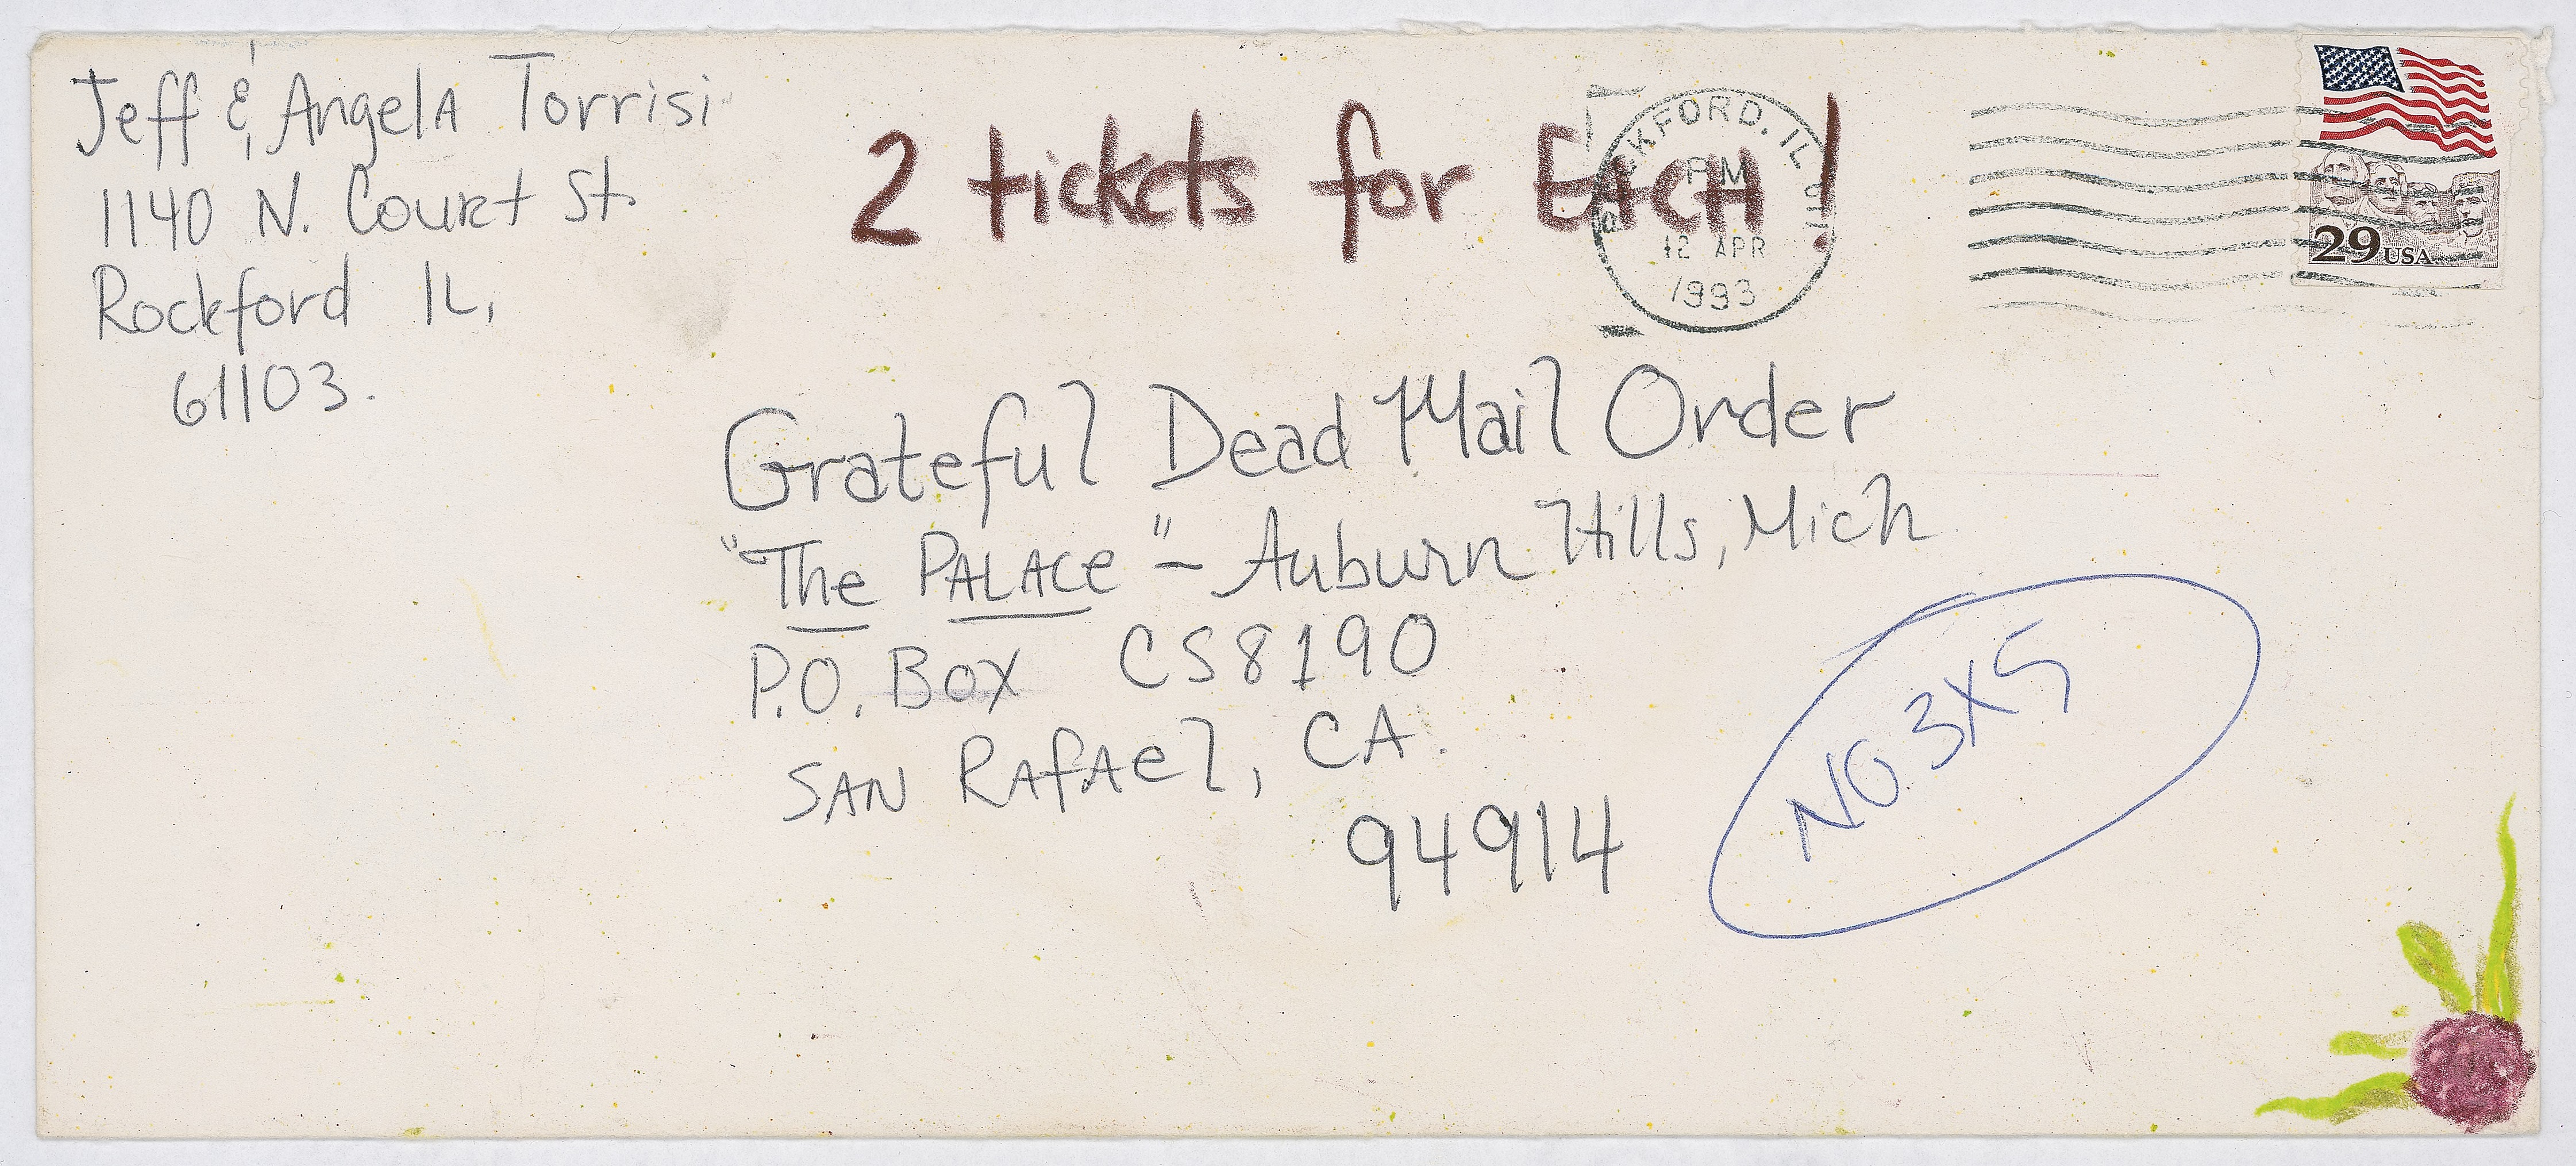 Jeff & Angela Torrisi
1140 N. Court St.
Rockford IL,
61103.
2 tickets for Each!
ROCKFORD, IL
PM
12 APR
1993
29 USA
Grateful Dead Mail Order
"The PALACe" - Auburn Hills, Mich
P.O. Box CS8190
SAN RAfAel, CA.
94914
NO 3X5